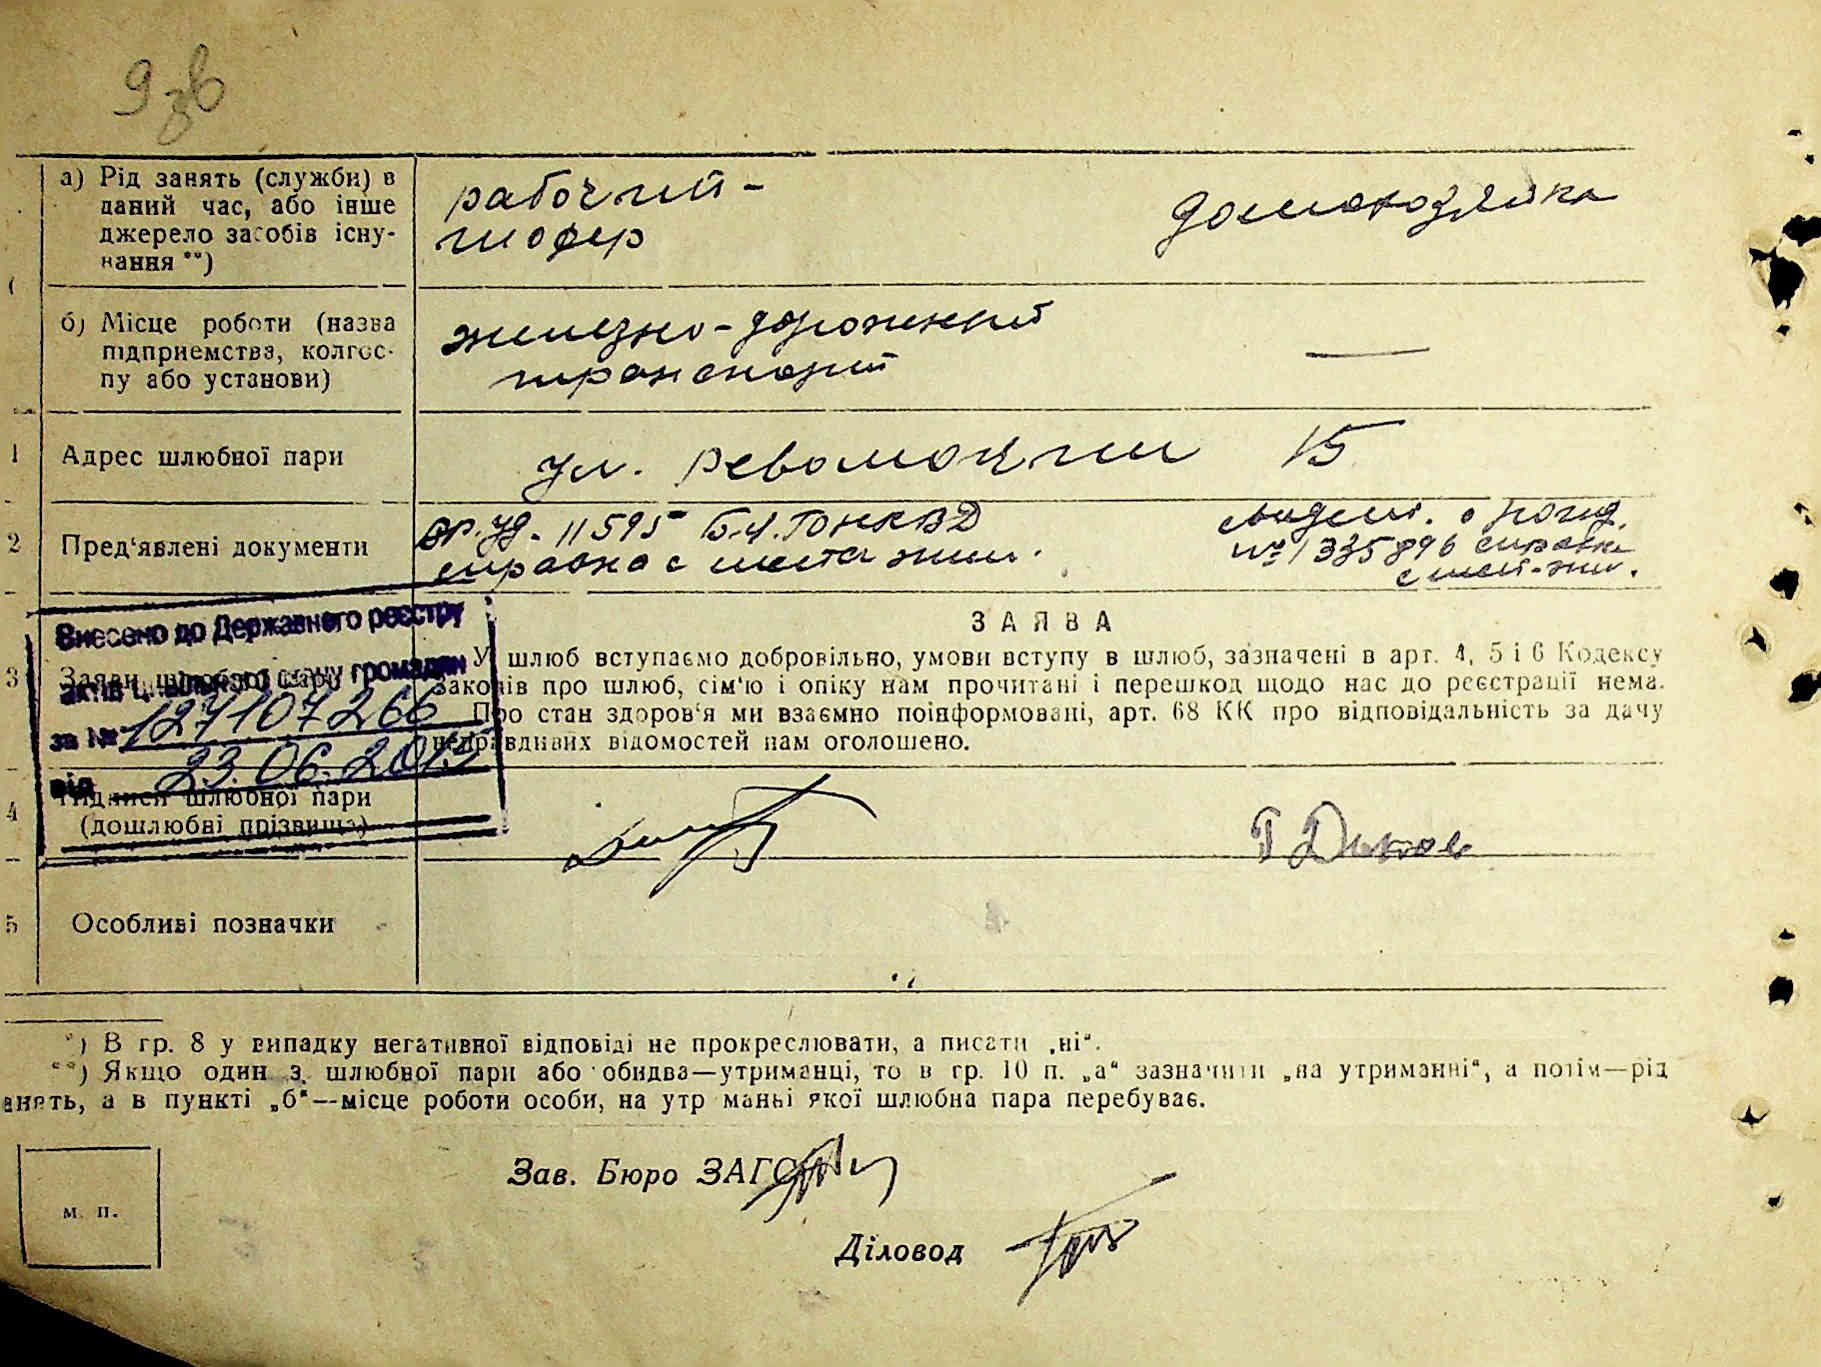 а) Рід занять (служби) в
даний час, або інше
джерело засобів існу-
вання **)
рабочий -
шофер
домохозяйка
б) Місце роботи (назва
підприємства, колгос-
пу або установи)
железно-дорожный
транспорт
—
1 Адрес шлюбної пари
ул. революции 15
2 Пред'явлені документи
вр. уд. 11595 Б.Ч. ГОНКВД
справка с места жит.
свидет. о рожд.
№ 1335896 справка
с мест. жит.
Внесено до Державного реєстру
актів цивільного стану громадян
за № 127107266
від 23.06.2015
3 Заяви шлюбної пари
ЗАЯВА
У шлюб вступаємо добровільно, умови вступу в шлюб, зазначені в арт. 4, 5 і 6 Кодексу
законів про шлюб, сім'ю і опіку нам прочитані і перешкод щодо нас до реєстрації нема.
Про стан здоров'я ми взаємно поінформовані, арт. 68 КК про відповідальність за дачу
неправдивих відомостей нам оголошено.
4 Підписи шлюбної пари
(дошлюбні прізвища)
5 Особливі позначки
*) В гр. 8 у випадку негативної відповіді не прокреслювати, а писати „ні“.
**) Якщо один з шлюбної пари або обидва—утриманці, то в гр. 10 п. „а“ зазначити „на утриманні“, а потім—рід
анять, а в пункті „б“—місце роботи особи, на утр маньі якої шлюбна пара перебуває.
Зав. Бюро ЗАГС
м. п.
Діловод